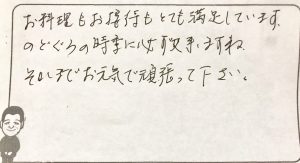 お料理もお接待もとても満足しています。
のどぐろの時季に必ず又来ますね
それまでお元気で頑張って下さい。